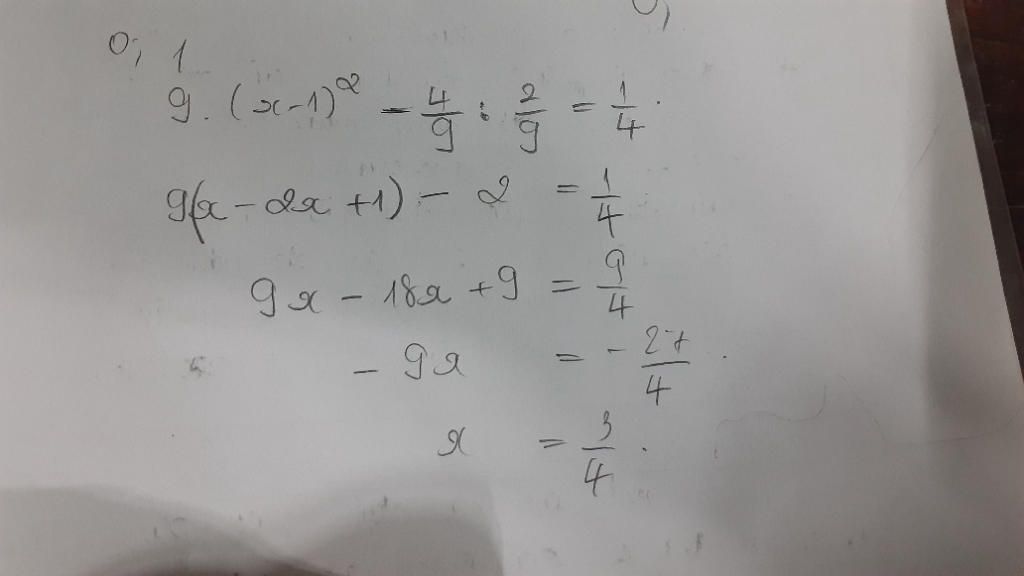 0; 1
9. (x-1)² - 4/9 : 2/9 = 1/4.
9(x - 2x + 1) - 2 = 1/4
9x - 18x + 9 = 9/4
- 9x = - 27/4.
x = 3/4.